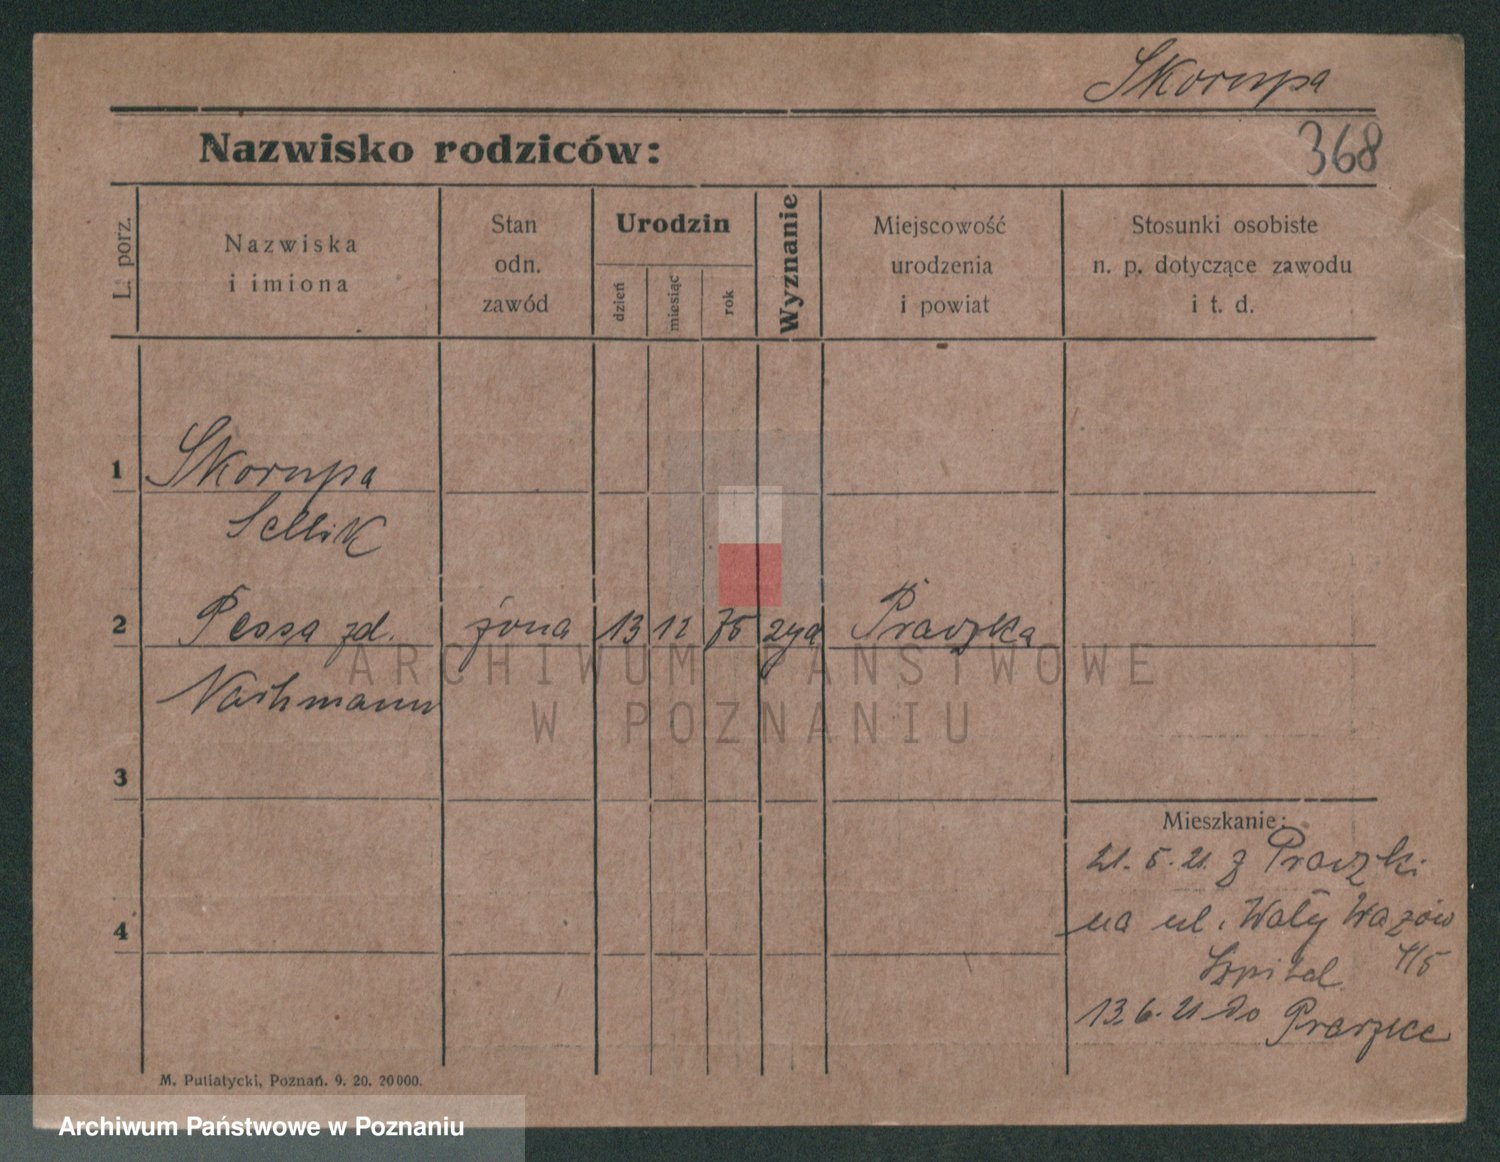 Skorupa
368
Nazwisko rodziców:
L. porz.
Nazwiska
i imiona
Stan
odn.
zawód
Urodzin
dzień
miesiąc
rok
Wyznanie
Miejscowość
urodzenia
i powiat
Stosunki osobiste
n. p. dotyczące zawodu
i t. d.
1 Skorupa
2 Pessa zd. żona 13 12 75 Praszka
Nachmann
3
Mieszkanie:
21. 5. 21. z Praszki
4
na ul. Wały Wazów
Szpital 4/5
13. 6. 21 do
M. Putiatycki, Poznań. 9. 20. 20000.
ARCHIWUM PAŃSTWOWE
W POZNANIU
Archiwum Państwowe w Poznaniu